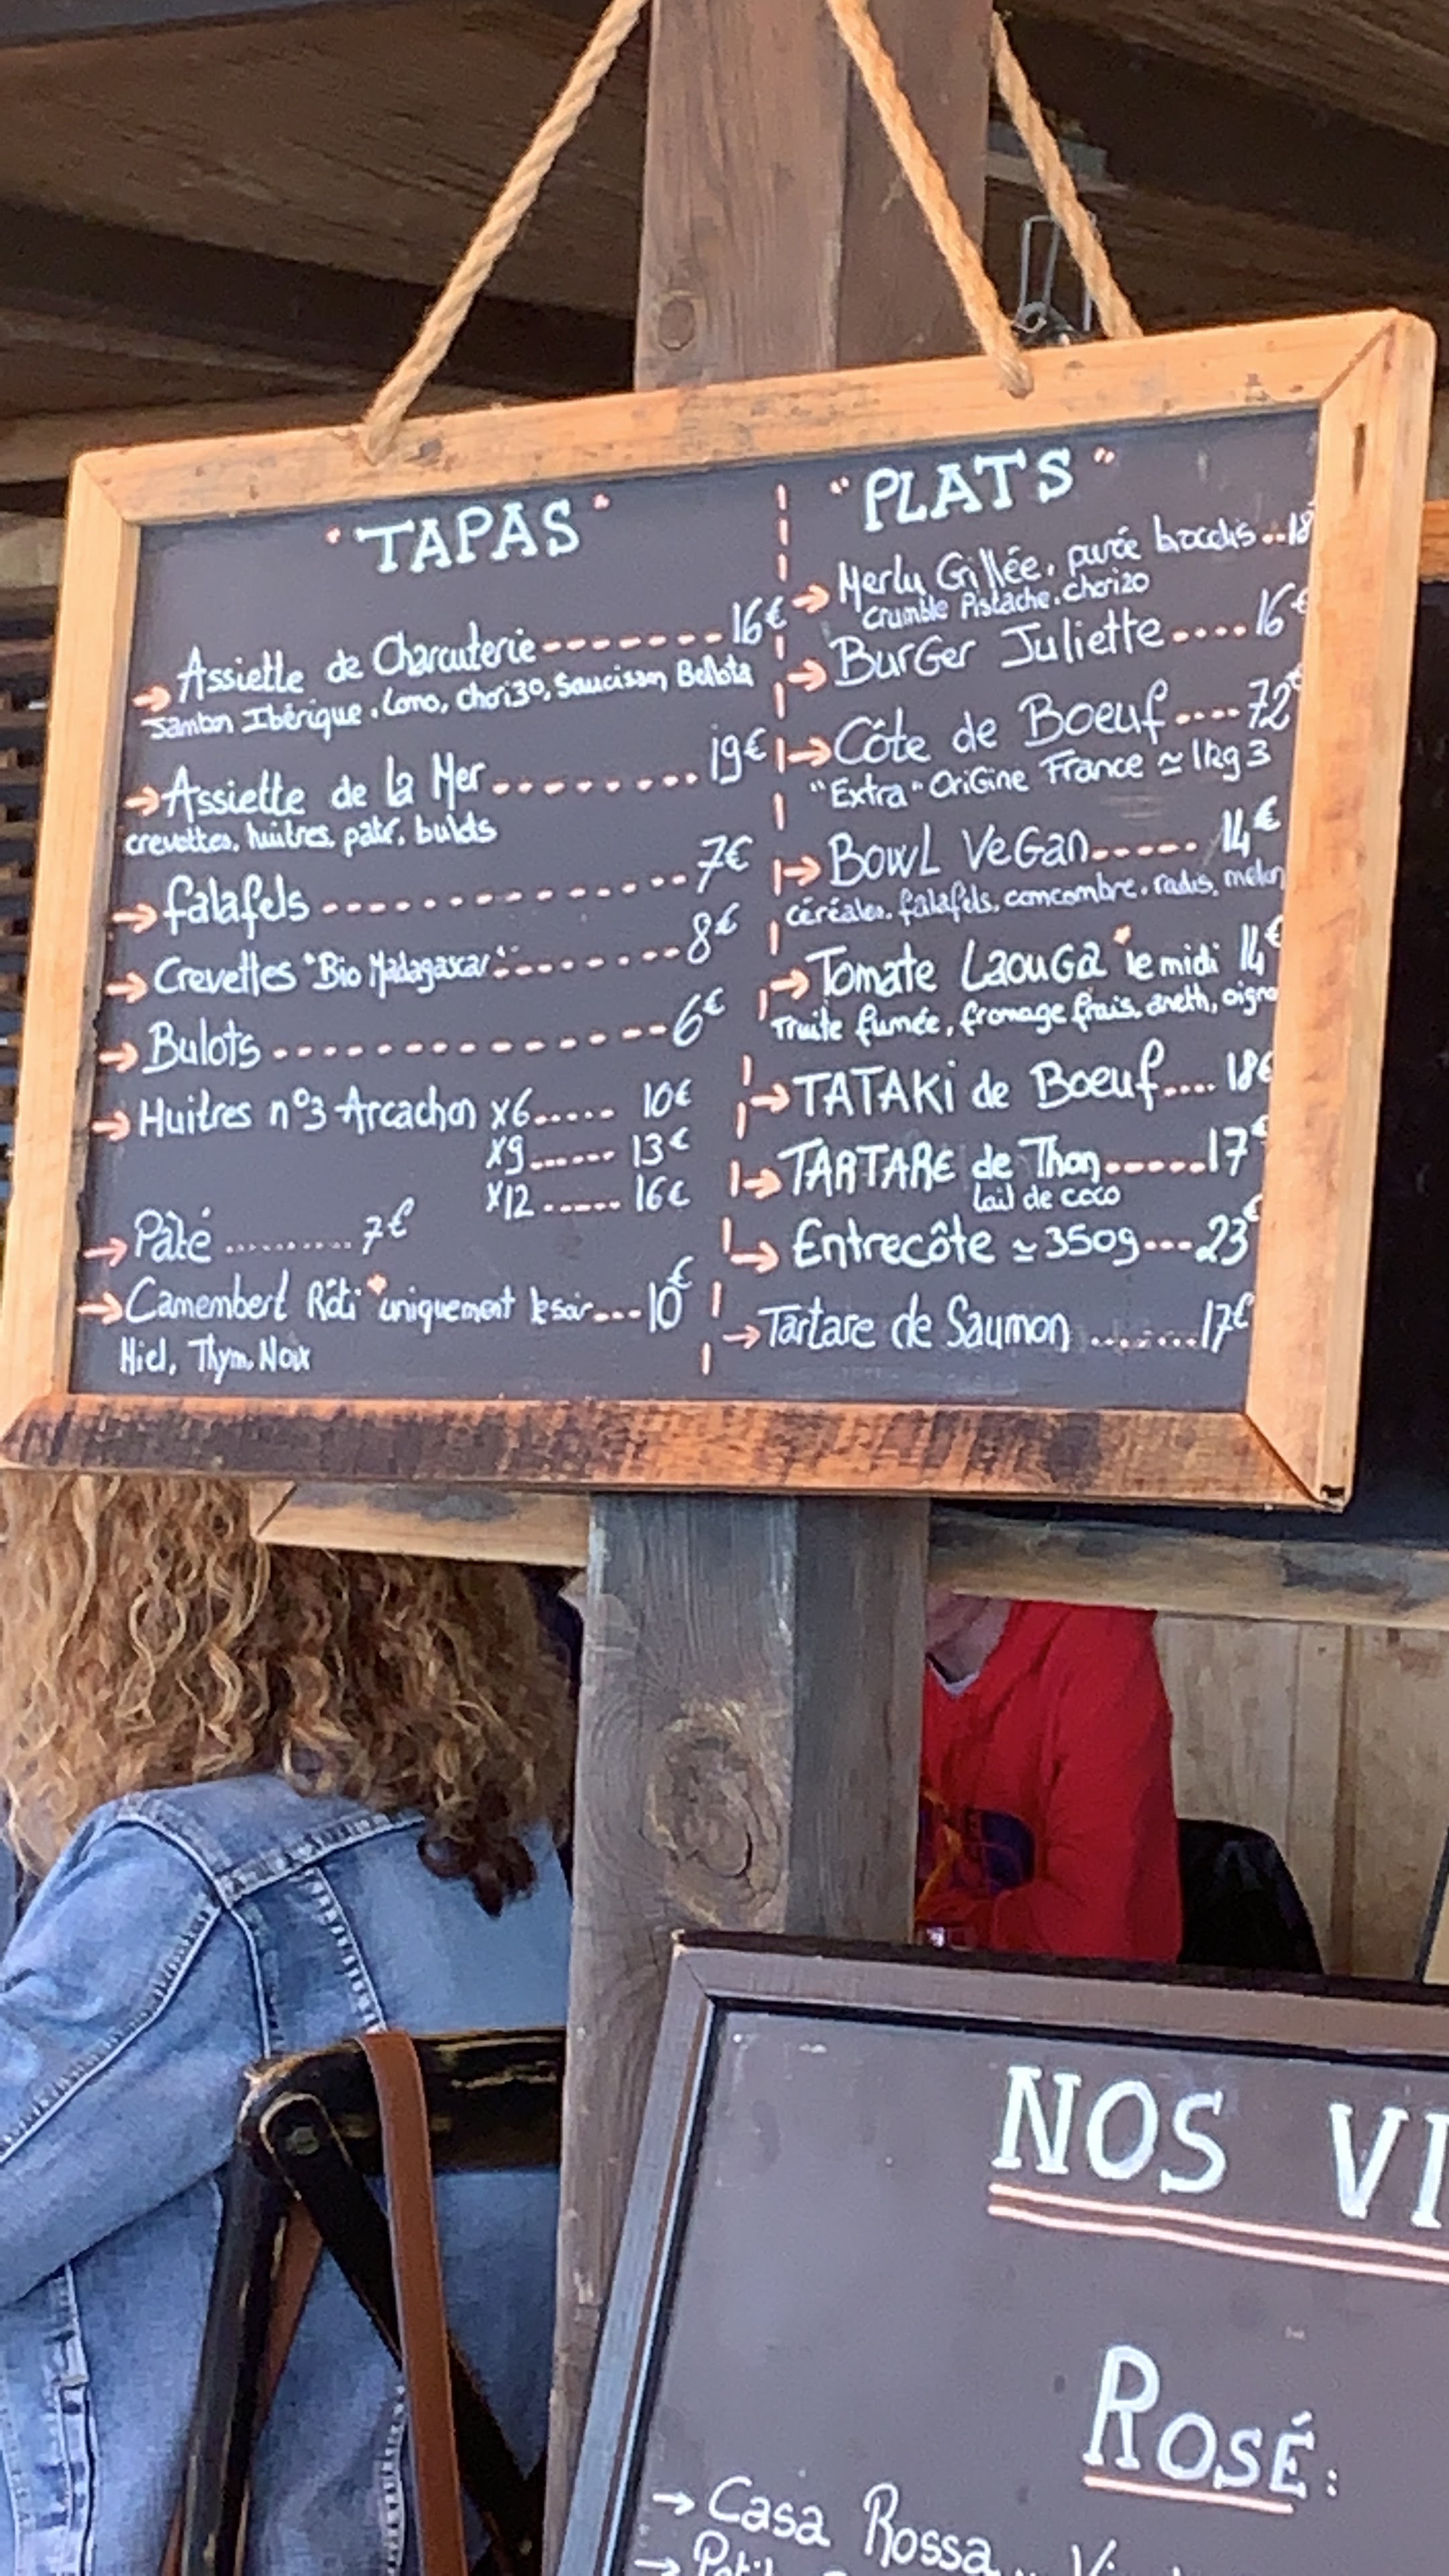 "TAPAS"
→ Assiette de Charcuterie ------- 16€
Jambon Ibérique, Lomo, chorizo, Saucisson Bellota
→ Assiette de la Mer ........ 19€
crevettes, huîtres, paté, bulots
→ falafels -------------- 7€
→ Crevettes "Bio Madagascar" -------- 8€
→ Bulots -------------- 6€
→ Huitres n°3 Arcachon x6..... 10€
x9...... 13€
x12 ..... 16€
→ Pâté .......... 7€
→ Camembert Rôti *uniquement le soir... 10€
Miel, Thym, Noix
"PLATS"
→ Merlu Grillée, purée brocolis..18
crumble Pistache, chorizo
→ BurGer Juliette.... 16€
→ Côte de Boeuf ---- 72€
"Extra" OriGine France ≃ 1kg 3
→ BowL VeGan..... 14€
céréales, falafels, concombre, radis, melon
→ Tomate LaouGa *le midi 14€
Truite fumée, fromage frais, aneth, oigno
→ TATAKi de Boeuf.... 18€
→ TARTARE de Thon......17€
lait de coco
→ Entrecôte ≃ 350g --- 23€
→ Tartare de Saumon ........17€
NOS VI
ROSÉ:
→ Casa Rossa
→ Petit